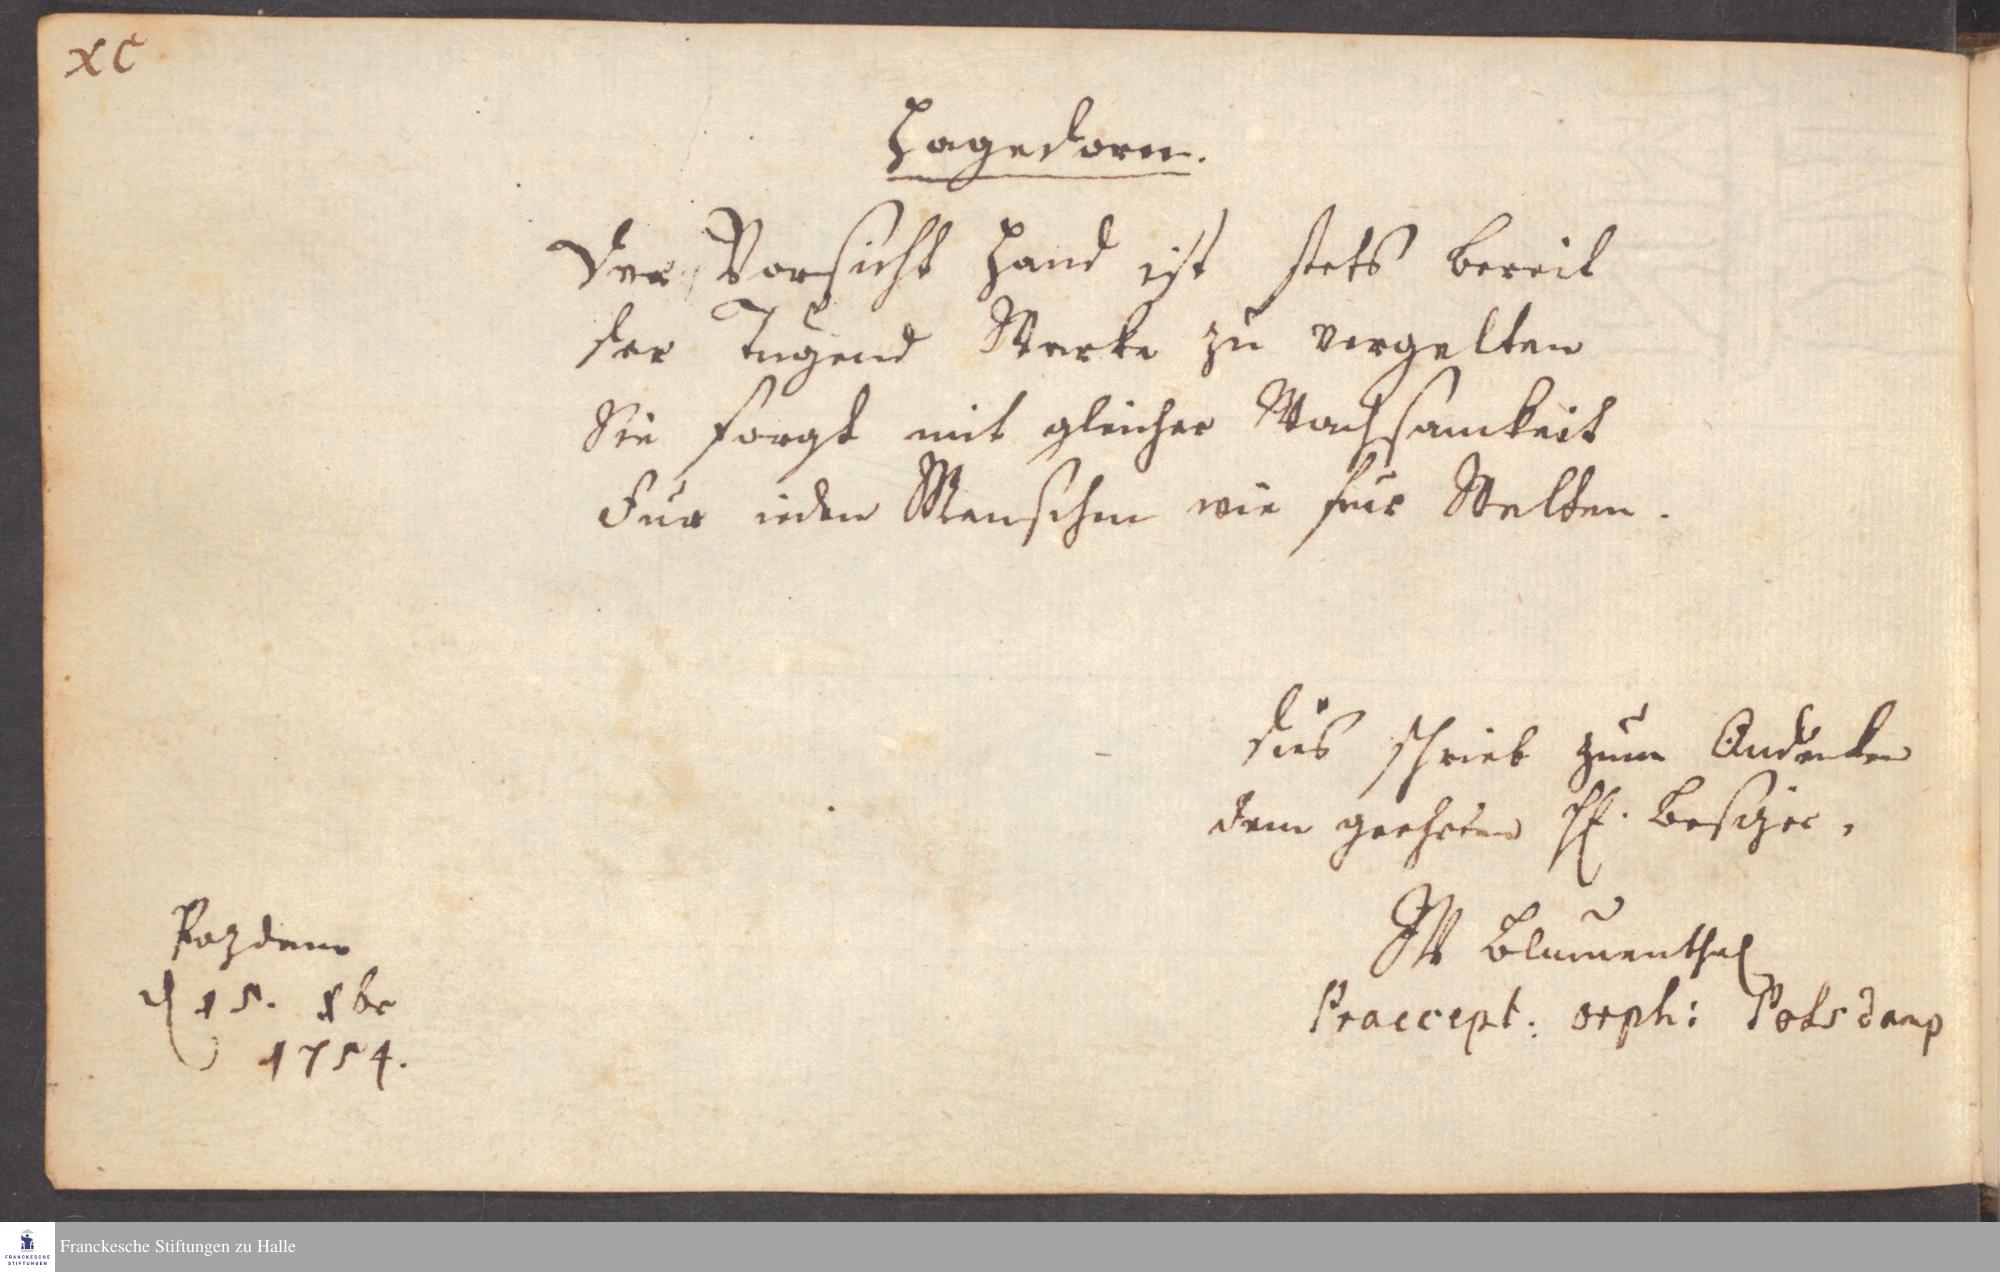 XC
Hagedorn.
Der Vorsicht Hand ist stets bereit
der Tugend Werke zu vergelten
Sie sorgt mit gleicher Wachsamkeit
Fur ieden Menschen wie fur Welten.
dies schrieb zum Andenken
dem geehrten H. Besitzer.
Blumenthal
Praecept: orph: Potsdamp
Pozdam
d 15. 8br
1754.
Franckesche Stiftungen zu Halle
FRANCKESCHE
STIFTUNGEN